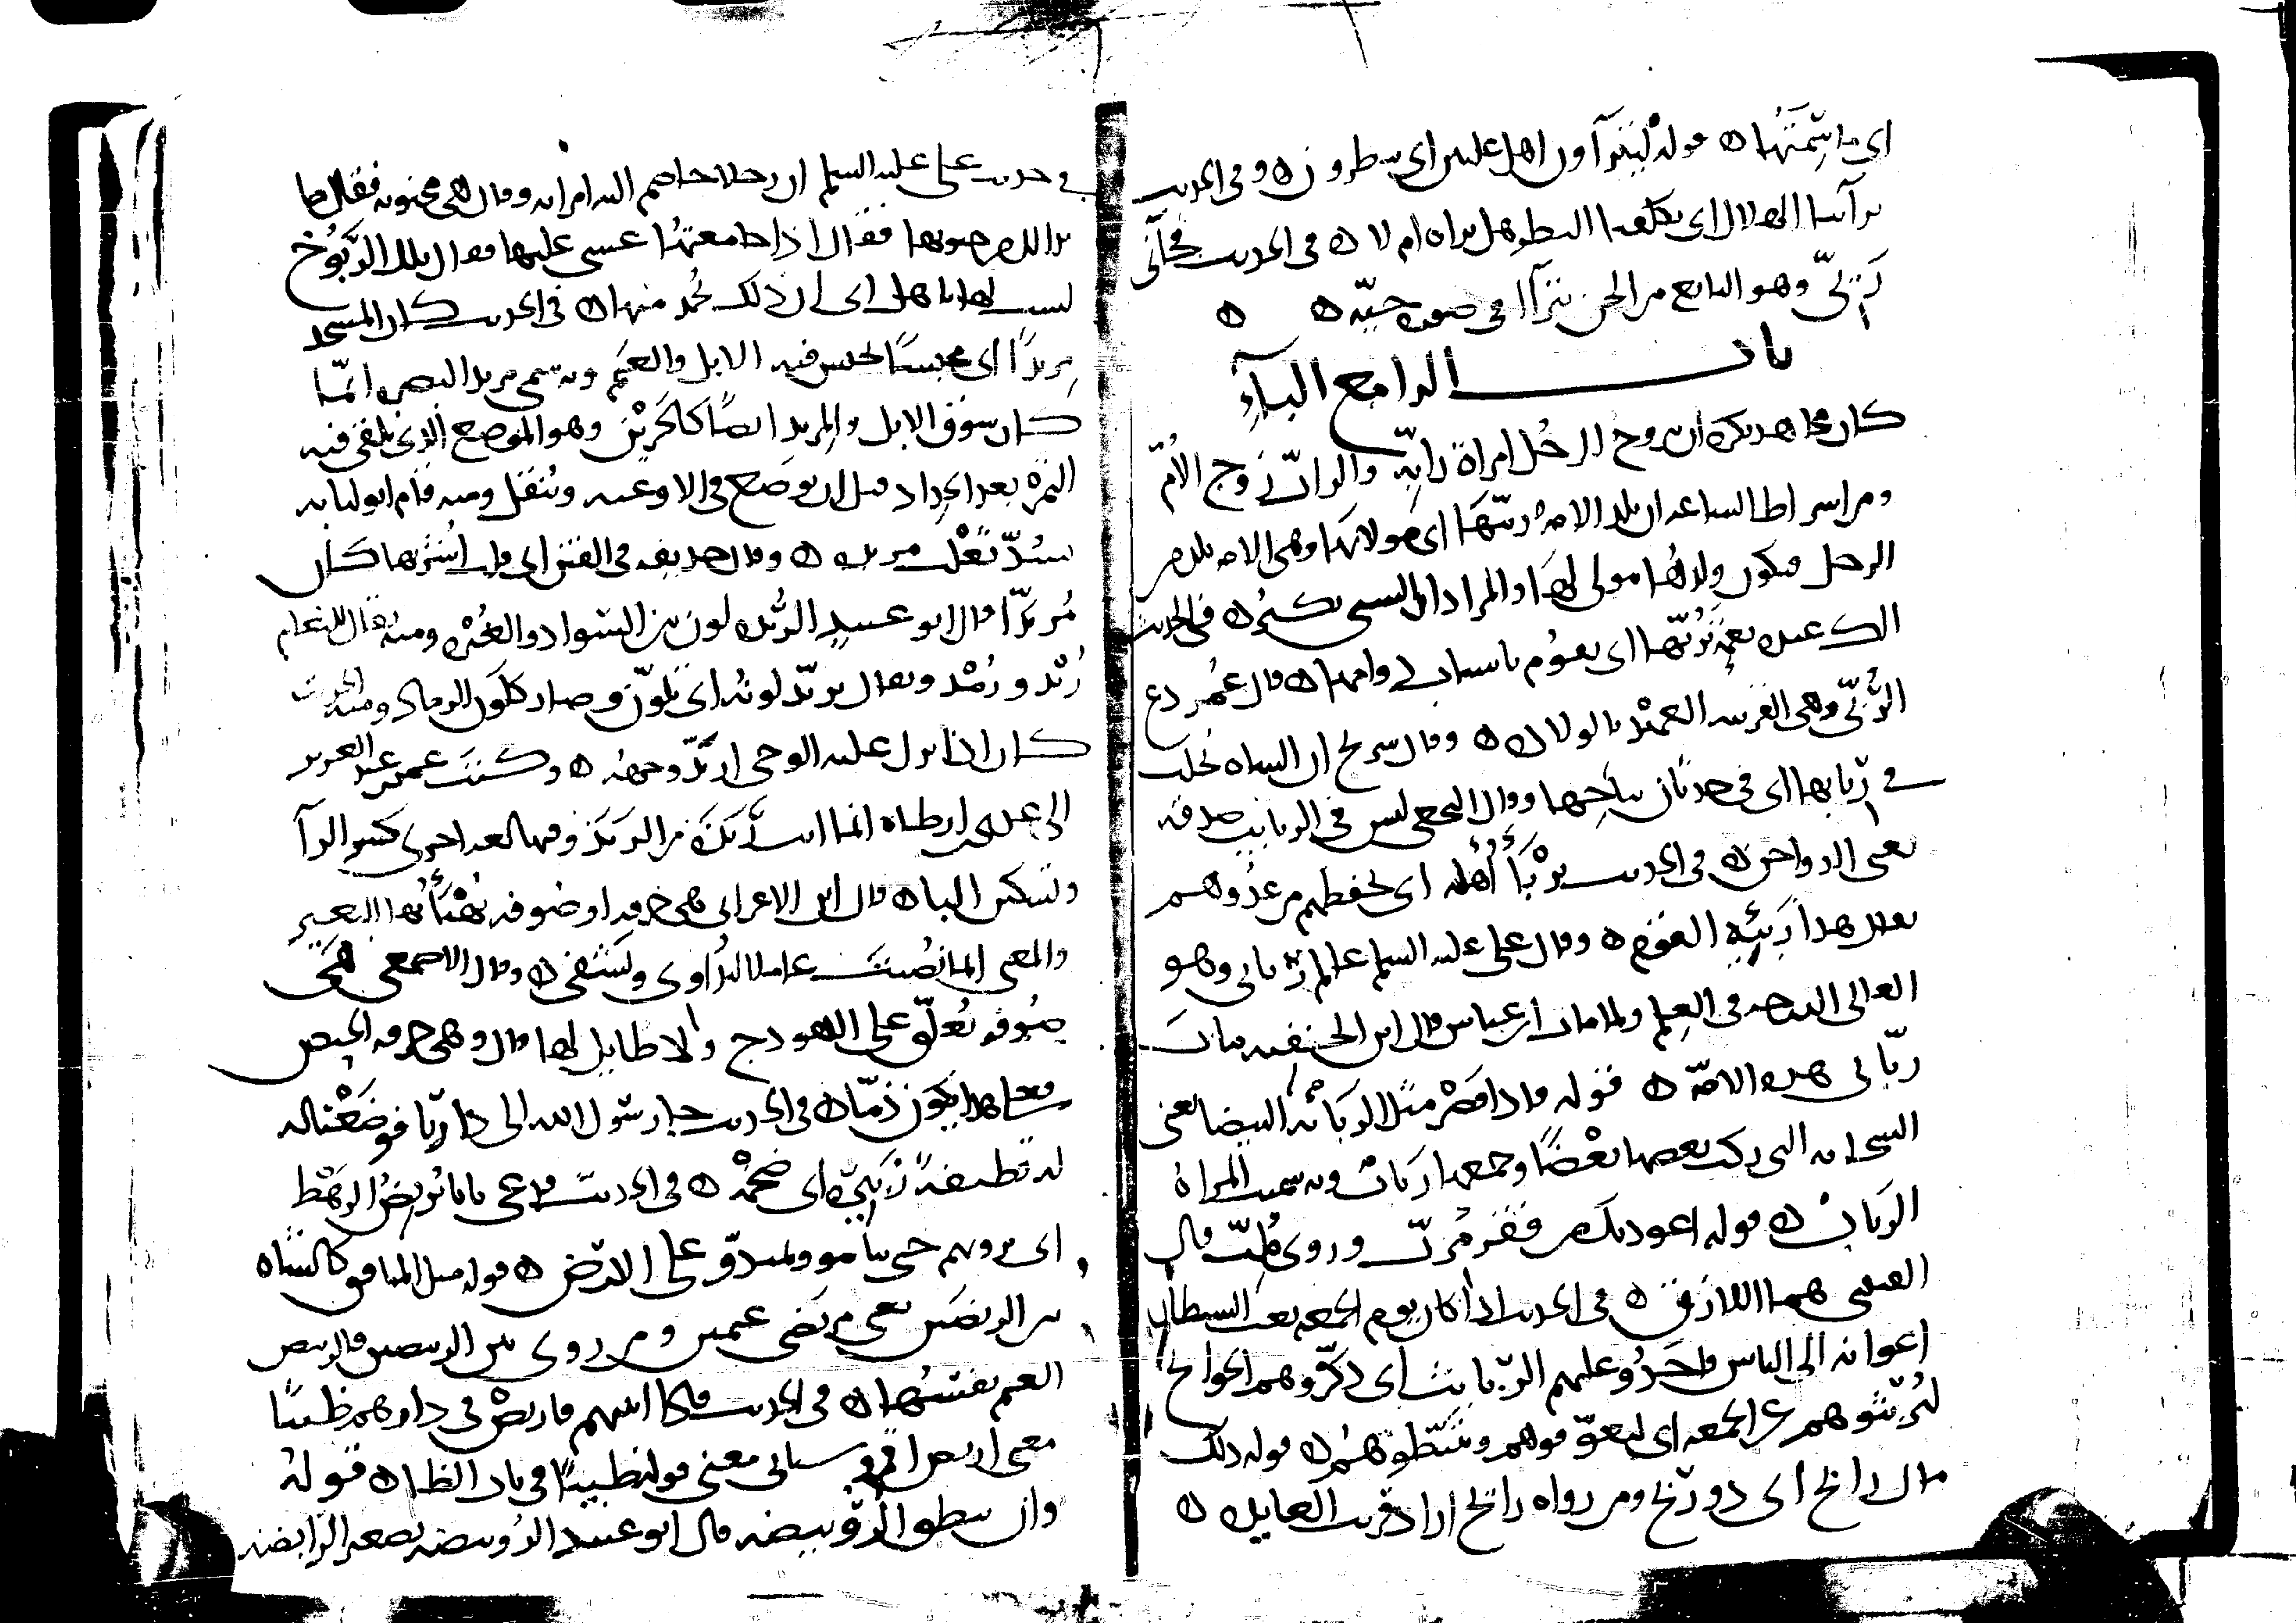 اي ما شتمتها ه قوله ليتراآون اهل عليين اي ينظرون ه وفي الحديث
تراآينا الهلال اي تكلفنا النظر هل نراه ام لا ه في الحديث فجآئي
رَئِيّ وهو التابع من الجن يتراآا في صورة حية ه ه
باب الرا مع البآء
كان مجاهد يكره ان يتزوج الرجل امراة رابّه والرابّ زوج الأم
ومن اشراط الساعة ان تلد الامة ربتها اي مولاتها وهي الامة تلد من
الرجل فيكون ولدها مولى لها والمراد ان السبي يكثر ه في الحديث
الك نعمة تَرُبُّها اي تقوم باسبابها ه قال عمر دع
الرُّبّى وهي القريبة العهد بالولادة ه وقال شريح ان الشاة تحلب
في رِبابها اي في حدثان نتاجها وقال النخعي ليس في الربايب صدقة
يعني الدواجن ه في الحديث يربأ أهله اي يحفظهم من عدوهم
يقال هذا ربيئة القوم ه وقال علي عليه السلم عالم ربّاني وهو
العالي الدرجة في العلم ولما مات ابن عباس قال ابن الحنفية مات
ربّاني هذه الامّة ه قوله واذا قصر مثل الربابة البيضا يعني
السحابة التي ركب بعضها بعضًا وجمعها رَباب وبه سميت المراة
الرباب ه قوله اعوذ بك من فقر مُرِبّ وروى مُلِبّ قال
القتيبي هما اللازق ه في الحديث اذا كان يوم الجمعة بعث الشيطان
اعوانه الى الناس فاخذوا عليهم الربايث اي ذكّروهم الحوايج
ليُربّثوهم عن الجمعة اي ليعوّقوهم ويثبّطوهم ه قوله ذلك
مال رابح اي ذو ربح ومن رواه رايح اراد قرب العايدة ه
في حديث علي عليه السلم ان رجلا خاصم اليه امراته وقال هي مجنونة فقال ما
بدا لك من جنونها فقال اذا جامعتها غشي عليها فقال تلك الرَّبُوخ
لست لها باهل اي ان ذلك يُحمد منها ه في الحديث كان المسجد
مِربدًا اي محبسًا تحبس فيه الابل والغنم وبه سمي مربد البصرة انما
كان سوق الابل والمربد ايضًا كالجَرِين وهو الموضع الذي يلقى فيه
التمر بعد الجداد قبل ان يوضع في الاوعية وينقل ومنه قام ابو لبابة
يسُدّ ثعلب مربده ه وقال حذيفة في الفتن اي قلب اشربها كان
مُربدًّا قال ابو عبيد الرُّبدة لون بين السواد والغُبرة ومنه يقال للنعام
رُبْد ورُمْد ويقال تربّد لونه اي تلوّن وصار كلون الرماد ومنه الحديث
كان اذا نزل عليه الوحي اربدّ وجهه ه وكتب عمر بن عبد العزيز
الى عدي بن ارطاة انما انت رِبذة من الربَذ وفيها لغة اخرى كسر الرآ
وتسكين الباء ه قال ابن الاعرابي هي خرقة او صوفة يُهنأ بها البعير
والمعنى انما نُصبت عاملا لتداوي وتشفي ه وقال الاصمعي هي
صوفة تُعلّق على الهودج ولا طايل لها قال وهي خرقة الحيض
فعلى هذا يكون ذمّا ه في الحديث جا رسول الله الى دارنا فوضعنا له
له قطيفة رَبيزة اي ضخمة ه في الحديث فدعى باناء يُربض الرهط
اي يرويهم حتى يناموا ويمتدّوا على الارض ه قوله مثل المنافق كالشاة
بين الربضين يعني مربضي غنمين ومن روى بين الربيضين فالربيض
الغنم نفسها ه في الحديث فاذا اتيتهم فاربض في دارهم ظبيًا
معنى اربض اقم وسياتي معنى قوله ظبيًا في باب الظا ه قوله
وان ينطق الرُّويبضة قال ابو عبيد الرُّويبضة تصغير الرابضة